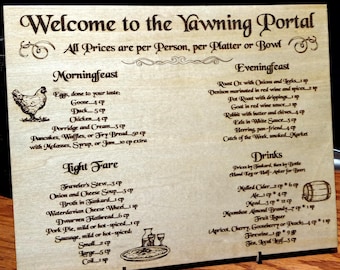 Welcome to the Yawning Portal
All Prices are per Person, per Platter or Bowl
Morningfeast
Eggs, done to your taste,
Goose...4 cp
Duck...5 cp
Chicken...4 cp
Porridge and Cream...5 cp
Pancakes, Waffles, or Fry Bread...10 cp
with Molasses, Syrup, or Jam...10 cp extra
Light Fare
Traveler's Stew...3 cp
Onion and Cheese Soup...3 cp
Broth in Tankard...1 cp
Waterdeavian Cheese Wheel...
Dwarven Flatbread...6 cp
Pork Pie, mild or hot-spiced...
Sausage, mild or hot-spiced
Small...2 cp
Large...5 cp
Coil...1 sp
Eveningfeast
Roast Ox with Onions and Leeks...1 sp
Venison marinated in red wine and spices...2 sp
Pot Roast with drippings...1 sp
Goat in red wine sauce...1 sp
Rabbit with butter and chives...4 cp
Eels in White Sauce...5 cp
Herring, pan-fried...4 cp
Catch of the Week, smoked, Market
Drinks
Prices by Tankard, then by Bottle
(Hand Keg or Half- Anker for Beer)
Mulled Cider...2 cp * 6 cp
Ale...2 cp * 4 sp
Mead...5 cp *
Moonbow Almond Brandy...
Fruit Liquor
Apricot, Cherry, Gooseberry, or Peach...4 cp * 1 sp
Firewine...
Tea, Loyal Leaf...5 cp